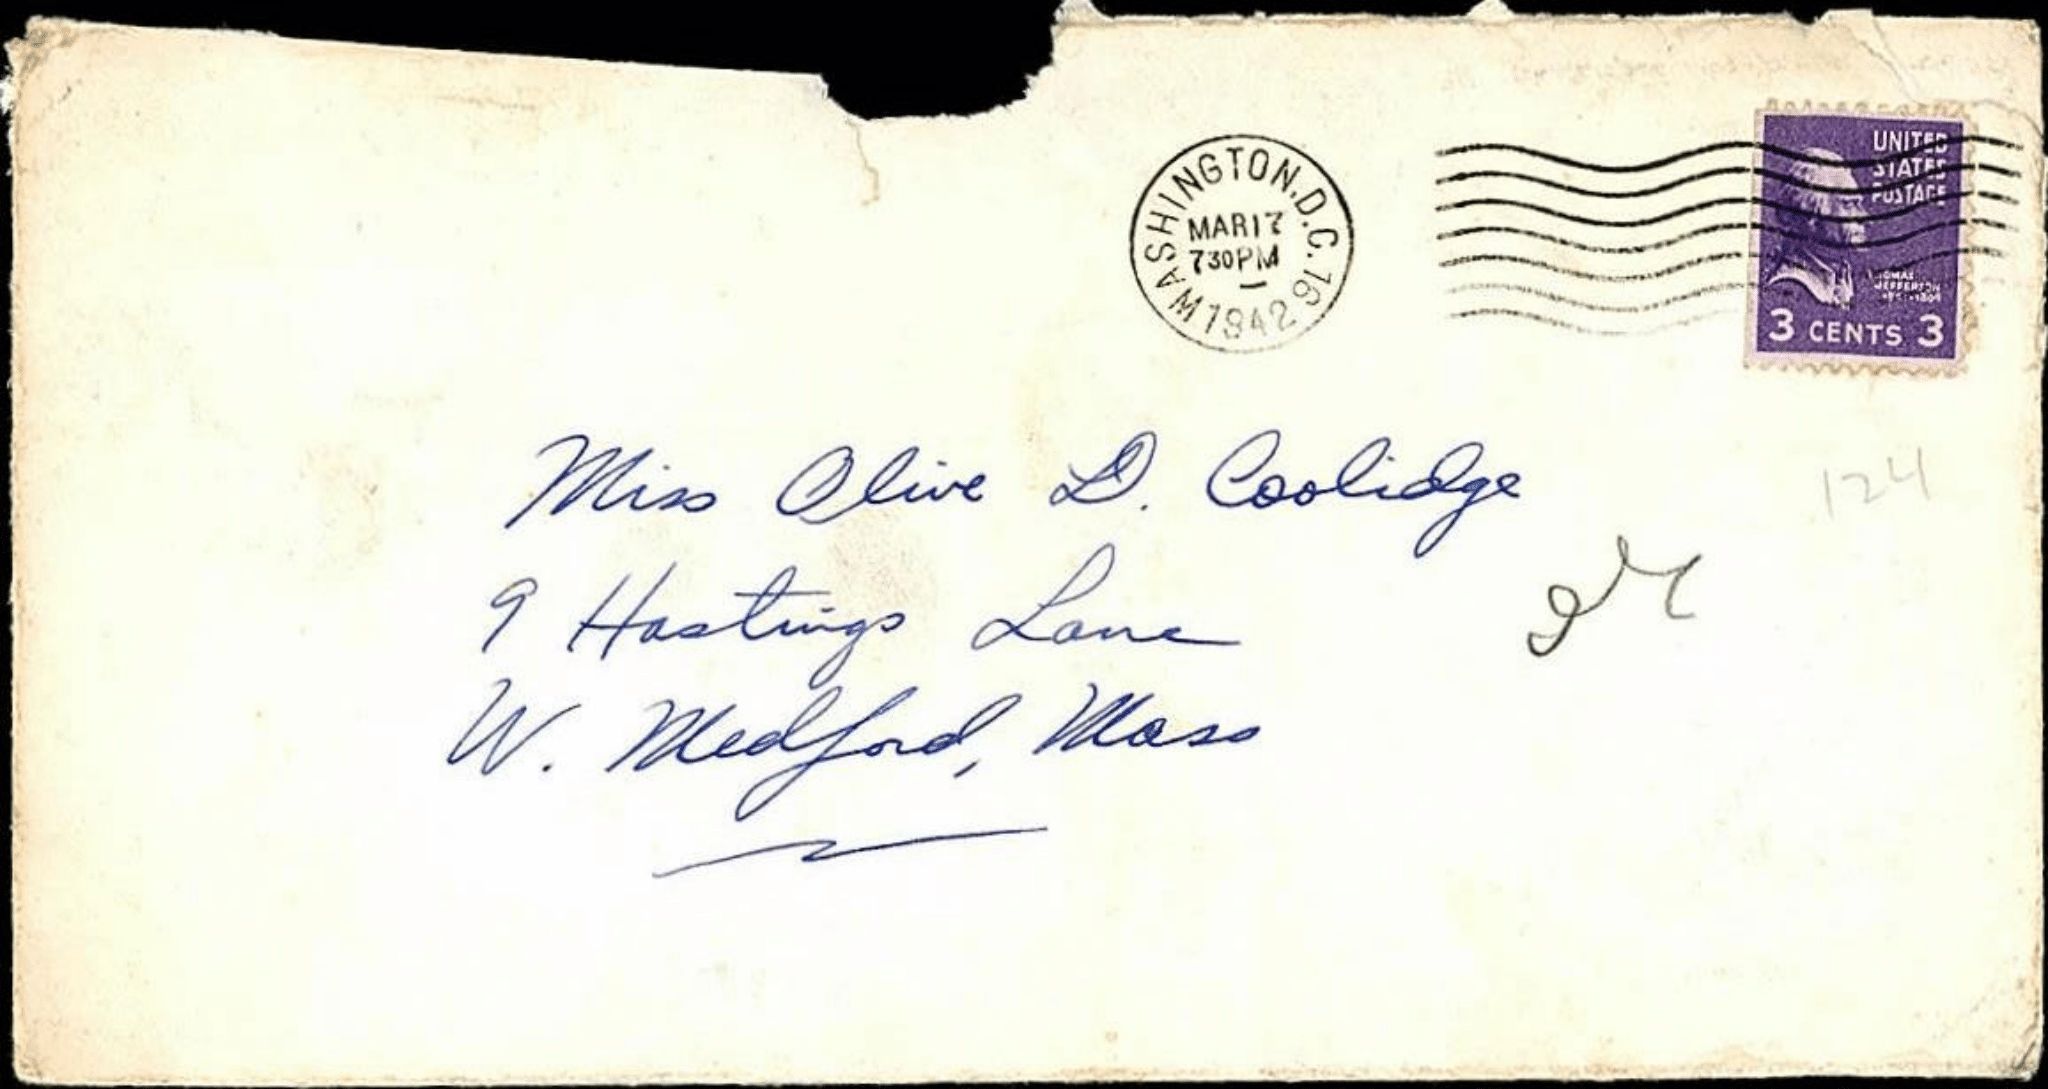 WASHINGTON, D.C. 16
MAR 17
730 PM
1942
UNITED
STATES
POSTAGE
THOMAS
JEFFERSON
3 CENTS 3
Miss Olive D. Coolidge
124
9 Hastings Lane
W. Medford, Mass